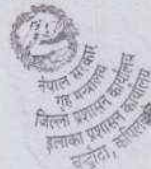 नेपाल सरकार
गृह मन्त्रालय
जिल्ला प्रशासन कार्यालय
इलाका प्रशासन कार्यालय